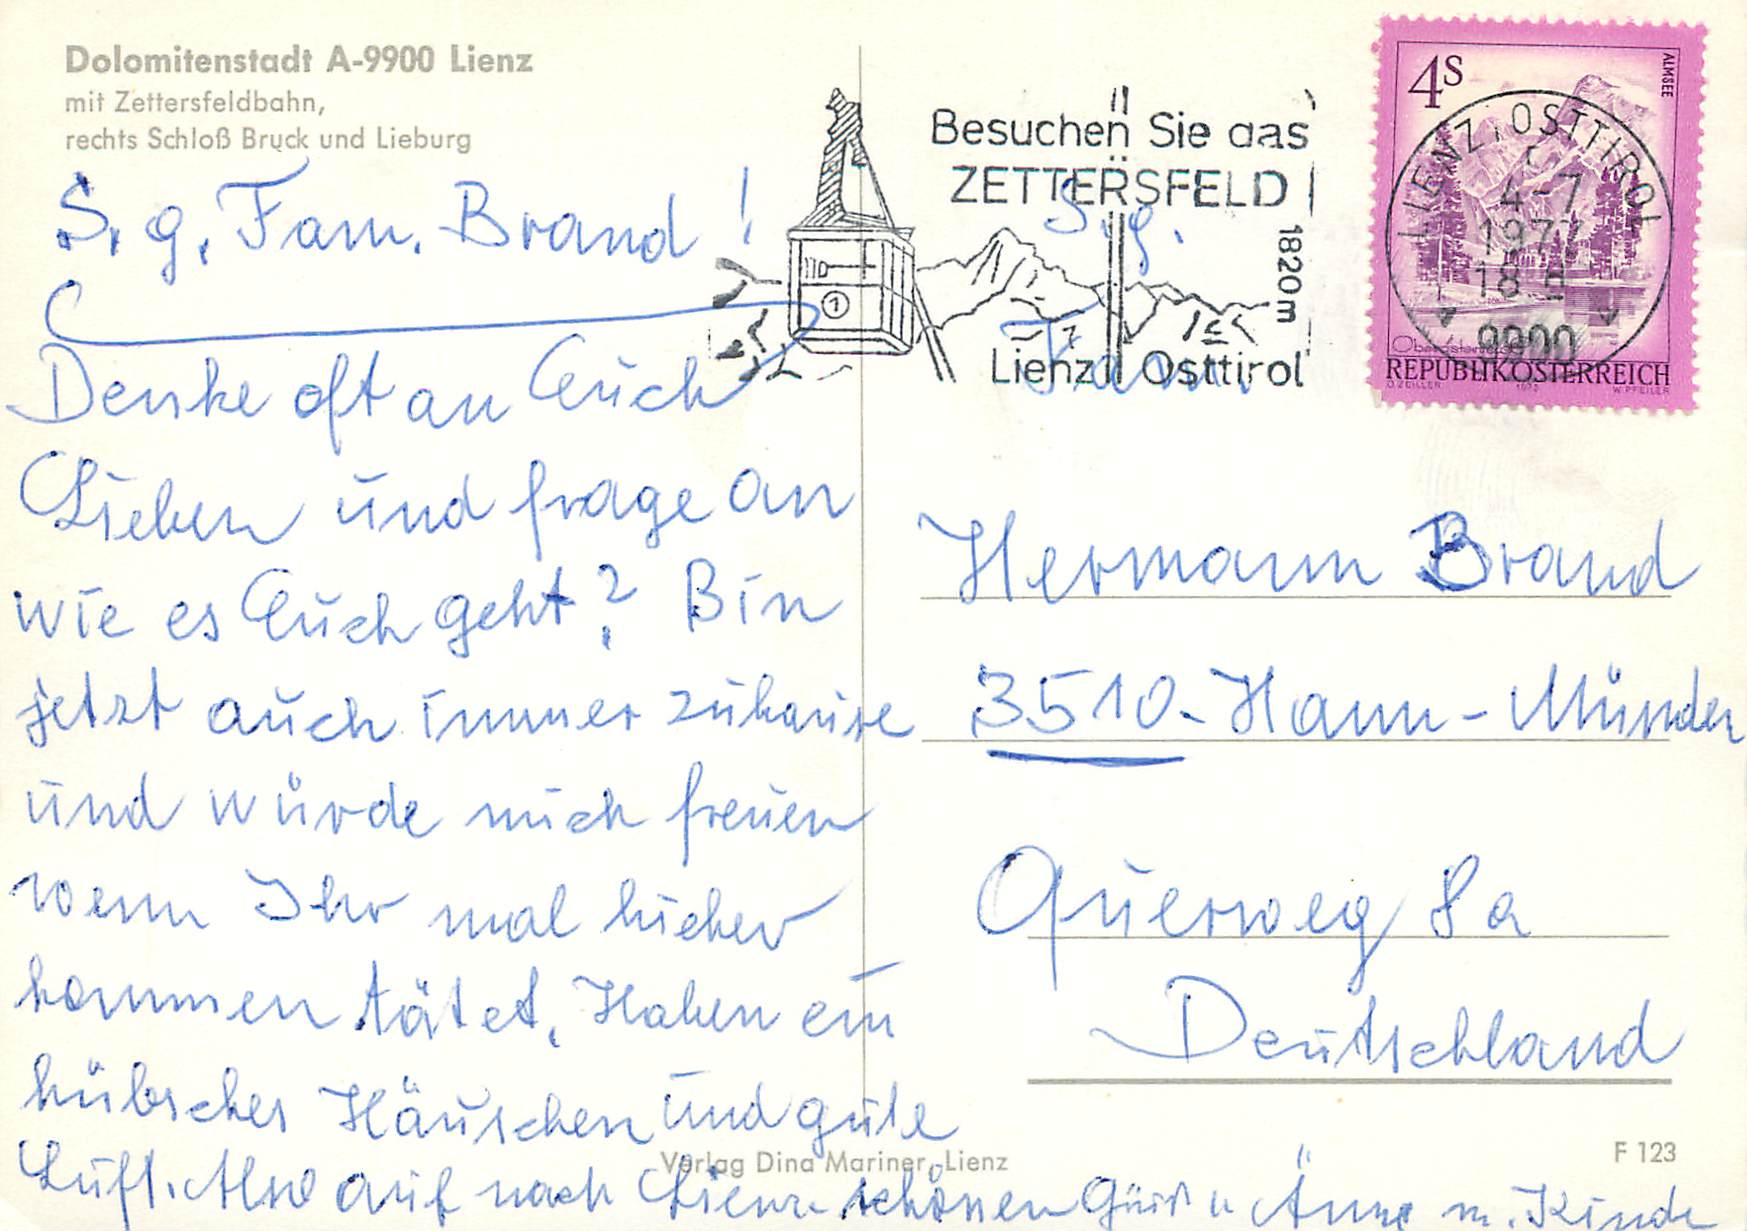 Dolomitenstadt A-9900 Lienz
mit Zettersfeldbahn,
rechts Schloß Bruck und Lieburg
S. g. Fam. Brand!
Denke oft an Euch
Lieben und frage an
wie es Euch geht? Bin
jetzt auch immer zuhause
und würde mich freuen
wenn Ihr mal hieher
kommen tätet. Haben ein
hübsches Häuschen und gute
Luft. Also auf nach Lienz. schönen Gruß u Änne m. Kinde
Besuchen Sie das
ZETTERSFELD
1820 m
Lienz Osttirol
1
4S
ALMSEE
LIENZ, OSTTIROL
4-7
1977
18
9900
REPUBLIK ÖSTERREICH
O. ZEILLER
W. PFEILER
S. g.
Fam.
Hermann Brand
3510 - Hann - Münden
Querweg 8a
Deutschland
Verlag Dina Mariner, Lienz
F 123